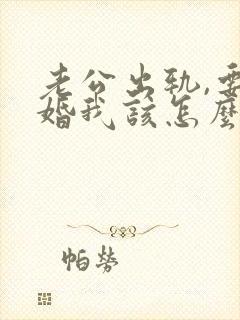 老公出轨,要
婚我该怎麼
帕勞